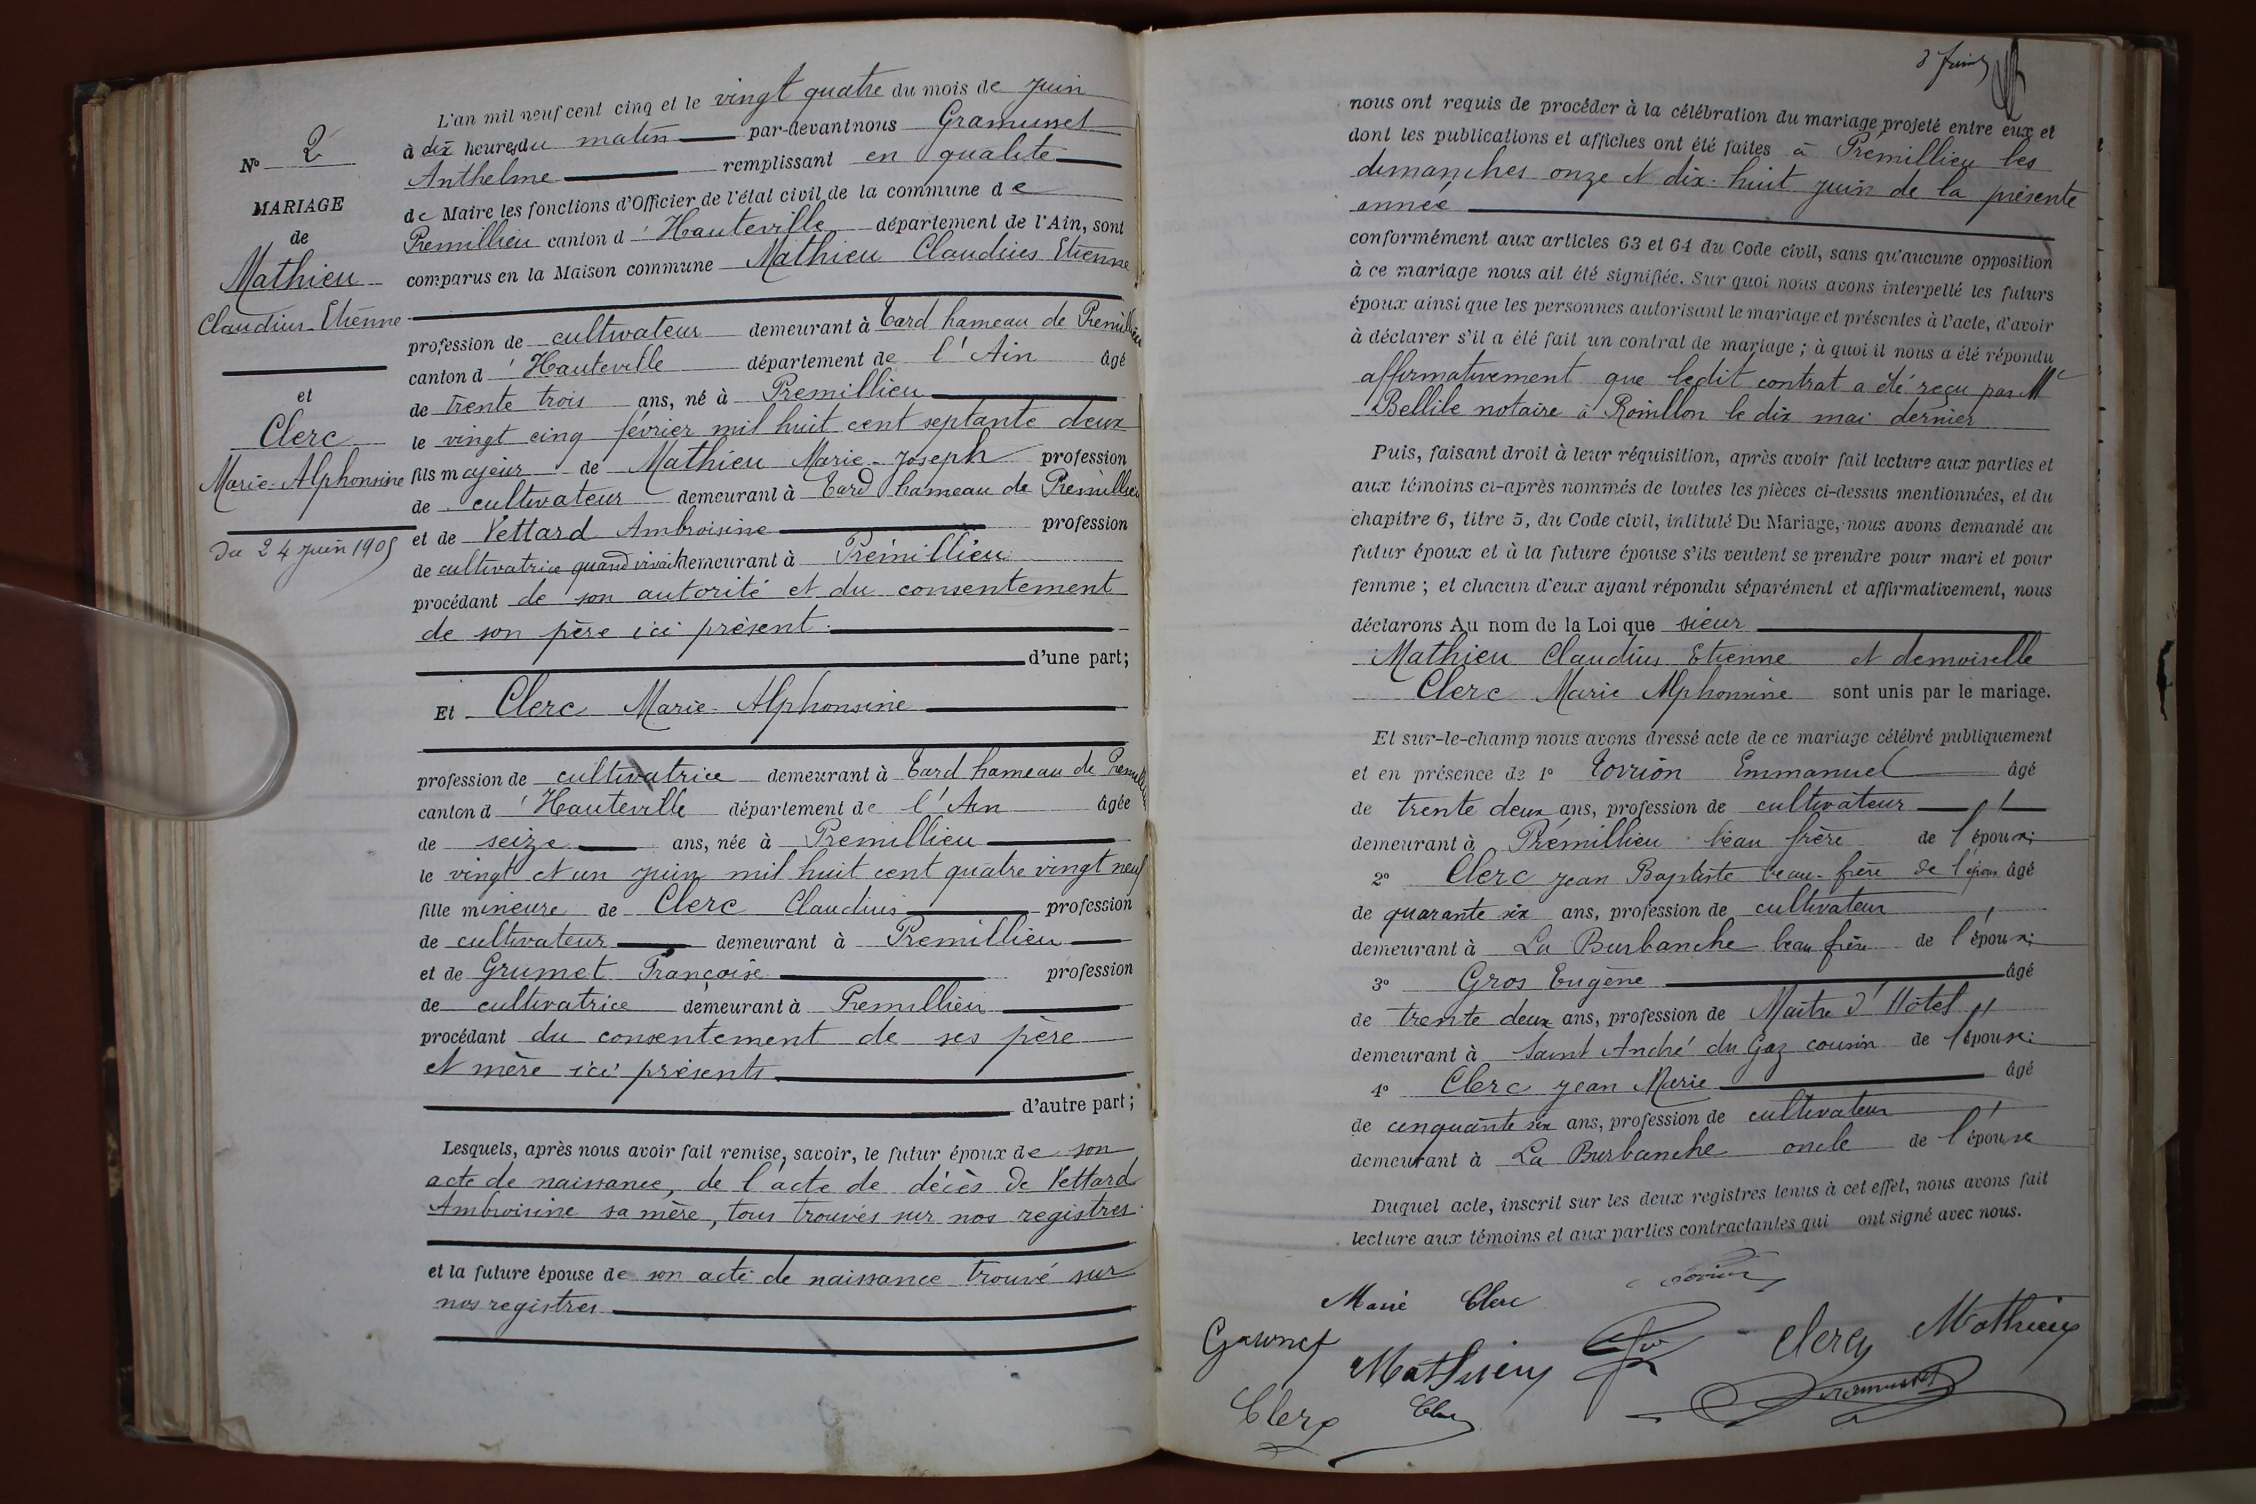 N° 2
MARIAGE
de
Mathieu
Claudius Etienne
et
Clerc
Marie-Alphonsine
Du 24 juin 1905
L'an mil neuf cent cinq et le vingt quatre du mois de juin
à dix heures du matin par-devant nous Gramusset
Anthelme remplissant en qualité
de Maire les fonctions d'Officier de l'état civil de la commune de
Premillieu canton d'Hauteville département de l'Ain, sont
comparus en la Maison commune Mathieu Claudius Etienne
profession de cultivateur demeurant à Tard hameau de Premillieu
canton d'Hauteville département de l'Ain âgé
de trente trois ans, né à Premillieu
le vingt cinq février mil huit cent septante deux
fils majeur de Mathieu Marie-Joseph profession
de cultivateur demeurant à Tard hameau de Premillieu
et de Vettard Ambroisine profession
de cultivatrice quand vivait demeurant à Prémillieu
procédant de son autorité et du consentement
de son père ici présent.
d'une part;
Et Clerc Marie-Alphonsine
profession de cultivatrice demeurant à Tard hameau de Premillieu
canton d'Hauteville département de l'Ain âgée
de seize ans, née à Premillieu
le vingt et un juin mil huit cent quatre vingt neuf
fille mineure de Clerc Claudius profession
de cultivateur demeurant à Premillieu
et de Grumet Françoise profession
de cultivatrice demeurant à Premillieu
procédant du consentement de ses père
et mère ici présents
d'autre part;
Lesquels, après nous avoir fait remise, savoir, le futur époux de son
acte de naissance, de l'acte de décès de Vettard
Ambroisine sa mère, tous trouvés sur nos registres
et la future épouse de son acte de naissance trouvé sur
nos registres
nous ont requis de procéder à la célébration du mariage projeté entre eux et
dont les publications et affiches ont été faites à Premillieu les
dimanches onze et dix-huit juin de la présente
année
conformément aux articles 63 et 64 du Code civil, sans qu'aucune opposition
à ce mariage nous ait été signifiée. Sur quoi nous avons interpellé les futurs
époux ainsi que les personnes autorisant le mariage et présentes à l'acte, d'avoir
à déclarer s'il a été fait un contrat de mariage; à quoi il nous a été répondu
affirmativement que ledit contrat a été reçu par Me
Bellile notaire à Rossillon le dix mai dernier
Puis, faisant droit à leur réquisition, après avoir fait lecture aux parties et
aux témoins ci-après nommés de toutes les pièces ci-dessus mentionnées, et du
chapitre 6, titre 5, du Code civil, intitulé Du Mariage, nous avons demandé au
futur époux et à la future épouse s'ils veulent se prendre pour mari et pour
femme; et chacun d'eux ayant répondu séparément et affirmativement, nous
déclarons Au nom de la Loi que sieur
Mathieu Claudius Etienne et demoiselle
Clerc Marie Alphonsine sont unis par le mariage.
Et sur-le-champ nous avons dressé acte de ce mariage célébré publiquement
et en présence de 1° Torrion Emmanuel âgé
de trente deux ans, profession de cultivateur
demeurant à Prémillieu beau frère de l'époux;
2° Clerc Jean Baptiste beau-frère de l'époux âgé
de quarante six ans, profession de cultivateur
demeurant à La Burbanche beau frère de l'époux;
3° Gros Eugène âgé
de trente deux ans, profession de Maître d'Hôtel
demeurant à Saint André du Gaz cousin de l'époux;
4° Clerc Jean Marie âgé
de cinquante six ans, profession de cultivateur
demeurant à La Burbanche oncle de l'épouse
Duquel acte, inscrit sur les deux registres tenus à cet effet, nous avons fait
lecture aux témoins et aux parties contractantes qui ont signé avec nous.
Marie Clerc
Mathieu
Clerc
Mathieu
Clerc
Clerc
Gramusset